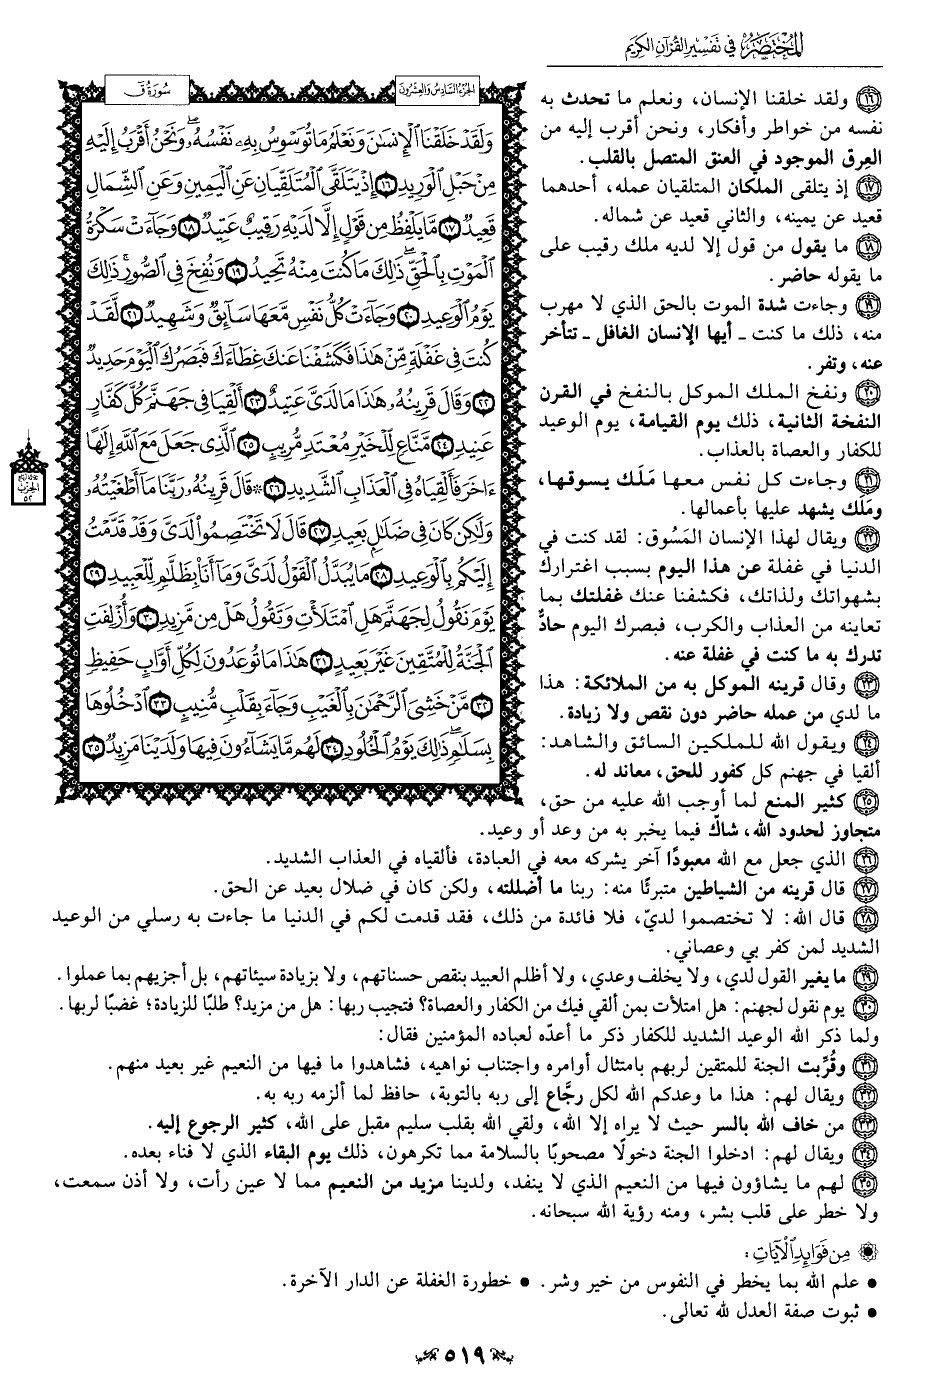 المختصر في تفسير القرآن الكريم
الجزء السادس والعشرون
سورة ق
وَلَقَدْ خَلَقْنَا ٱلْإِنسَٰنَ وَنَعْلَمُ مَا تُوَسْوِسُ بِهِۦ نَفْسُهُۥ ۖ وَنَحْنُ أَقْرَبُ إِلَيْهِ
مِنْ حَبْلِ ٱلْوَرِيدِ ١٦ إِذْ يَتَلَقَّى ٱلْمُتَلَقِّيَانِ عَنِ ٱلْيَمِينِ وَعَنِ ٱلشِّمَالِ
قَعِيدٌ ١٧ مَّا يَلْفِظُ مِن قَوْلٍ إِلَّا لَدَيْهِ رَقِيبٌ عَتِيدٌ ١٨ وَجَآءَتْ سَكْرَةُ
ٱلْمَوْتِ بِٱلْحَقِّ ۖ ذَٰلِكَ مَا كُنتَ مِنْهُ تَحِيدُ ١٩ وَنُفِخَ فِى ٱلصُّورِ ۚ ذَٰلِكَ
يَوْمُ ٱلْوَعِيدِ ٢٠ وَجَآءَتْ كُلُّ نَفْسٍ مَّعَهَا سَآئِقٌ وَشَهِيدٌ ٢١ لَّقَدْ
كُنتَ فِى غَفْلَةٍ مِّنْ هَٰذَا فَكَشَفْنَا عَنكَ غِطَآءَكَ فَبَصَرُكَ ٱلْيَوْمَ حَدِيدٌ
٢٢ وَقَالَ قَرِينُهُۥ هَٰذَا مَا لَدَىَّ عَتِيدٌ ٢٣ أَلْقِيَا فِى جَهَنَّمَ كُلَّ كَفَّارٍ
عَنِيدٍ ٢٤ مَّنَّاعٍ لِّلْخَيْرِ مُعْتَدٍ مُّرِيبٍ ٢٥ ٱلَّذِى جَعَلَ مَعَ ٱللَّهِ إِلَٰهًا
ءَاخَرَ فَأَلْقِيَاهُ فِى ٱلْعَذَابِ ٱلشَّدِيدِ ٢٦ ۞ قَالَ قَرِينُهُۥ رَبَّنَا مَآ أَطْغَيْتُهُۥ
وَلَٰكِن كَانَ فِى ضَلَٰلٍۭ بَعِيدٍ ٢٧ قَالَ لَا تَخْتَصِمُوا۟ لَدَىَّ وَقَدْ قَدَّمْتُ
إِلَيْكُم بِٱلْوَعِيدِ ٢٨ مَا يُبَدَّلُ ٱلْقَوْلُ لَدَىَّ وَمَآ أَنَا۠ بِظَلَّٰمٍ لِّلْعَبِيدِ ٢٩
يَوْمَ نَقُولُ لِجَهَنَّمَ هَلِ ٱمْتَلَأْتِ وَتَقُولُ هَلْ مِن مَّزِيدٍ ٣٠ وَأُزْلِفَتِ
ٱلْجَنَّةُ لِلْمُتَّقِينَ غَيْرَ بَعِيدٍ ٣١ هَٰذَا مَا تُوعَدُونَ لِكُلِّ أَوَّابٍ حَفِيظٍ
٣٢ مَّنْ خَشِىَ ٱلرَّحْمَٰنَ بِٱلْغَيْبِ وَجَآءَ بِقَلْبٍ مُّنِيبٍ ٣٣ ٱدْخُلُوهَا
بِسَلَٰمٍ ۖ ذَٰلِكَ يَوْمُ ٱلْخُلُودِ ٣٤ لَهُم مَّا يَشَآءُونَ فِيهَا وَلَدَيْنَا مَزِيدٌ ٣٥
الحزب
٥٢
١٦ ولقد خلقنا الإنسان، ونعلم ما تحدث به
نفسه من خواطر وأفكار، ونحن أقرب إليه من
العِرق الموجود في العنق المتصل بالقلب.
١٧ إذ يتلقى الملكان المتلقيان عمله، أحدهما
قعيد عن يمينه، والثاني قعيد عن شماله.
١٨ ما يقول من قول إلا لديه ملك رقيب على
ما يقوله حاضر.
١٩ وجاءت شدة الموت بالحق الذي لا مهرب
منه، ذلك ما كنت ـ أيها الإنسان الغافل ـ تتأخر
عنه، وتفر.
٢٠ ونفخ الملك الموكل بالنفخ في القرن
النفخة الثانية، ذلك يوم القيامة، يوم الوعيد
للكفار والعصاة بالعذاب.
٢١ وجاءت كل نفس معها مَلَك يسوقها،
ومَلَك يشهد عليها بأعمالها.
٢٢ ويقال لهذا الإنسان المَسُوق: لقد كنت في
الدنيا في غفلة عن هذا اليوم بسبب اغترارك
بشهواتك ولذاتك، فكشفنا عنك غفلتك بما
تعاينه من العذاب والكرب، فبصرك اليوم حادٌّ
تدرك به ما كنت في غفلة عنه.
٢٣ وقال قرينه الموكل به من الملائكة: هذا
ما لدي من عمله حاضر دون نقص ولا زيادة.
٢٤ ويقول الله للملكين السائق والشاهد:
ألقيا في جهنم كل كفور للحق، معاند له.
٢٥ كثير المنع لما أوجب الله عليه من حق،
متجاوز لحدود الله، شاكّ فيما يخبر به من وعد أو وعيد.
٢٦ الذي جعل مع الله معبودًا آخر يشركه معه في العبادة، فألقياه في العذاب الشديد.
٢٧ قال قرينه من الشياطين متبرئًا منه: ربنا ما أضللته، ولكن كان في ضلال بعيد عن الحق.
٢٨ قال الله: لا تختصموا لديّ، فلا فائدة من ذلك، فقد قدمت لكم في الدنيا ما جاءت به رسلي من الوعيد
الشديد لمن كفر بي وعصاني.
٢٩ ما يغير القول لدي، ولا يخلف وعدي، ولا أظلم العبيد بنقص حسناتهم، ولا بزيادة سيئاتهم، بل أجزيهم بما عملوا.
٣٠ يوم نقول لجهنم: هل امتلأت بمن ألقي فيك من الكفار والعصاة؟ فتجيب ربها: هل من مزيد؟ طلبًا للزيادة؛ غضبًا لربها.
ولما ذكر الله الوعيد الشديد للكفار ذكر ما أعدّه لعباده المؤمنين فقال:
٣١ وقُرِّبت الجنة للمتقين لربهم بامتثال أوامره واجتناب نواهيه، فشاهدوا ما فيها من النعيم غير بعيد منهم.
٣٢ ويقال لهم: هذا ما وعدكم الله لكل رجَّاع إلى ربه بالتوبة، حافظ لما ألزمه ربه به.
٣٣ من خاف الله بالسر حيث لا يراه إلا الله، ولقي الله بقلب سليم مقبل على الله، كثير الرجوع إليه.
٣٤ ويقال لهم: ادخلوا الجنة دخولًا مصحوبًا بالسلامة مما تكرهون، ذلك يوم البقاء الذي لا فناء بعده.
٣٥ لهم ما يشاؤون فيها من النعيم الذي لا ينفد، ولدينا مزيد من النعيم مما لا عين رأت، ولا أذن سمعت،
ولا خطر على قلب بشر، ومنه رؤية الله سبحانه.
من فوائد الآيات:
• علم الله بما يخطر في النفوس من خير وشر. • خطورة الغفلة عن الدار الآخرة.
• ثبوت صفة العدل لله تعالى.
٥١٩